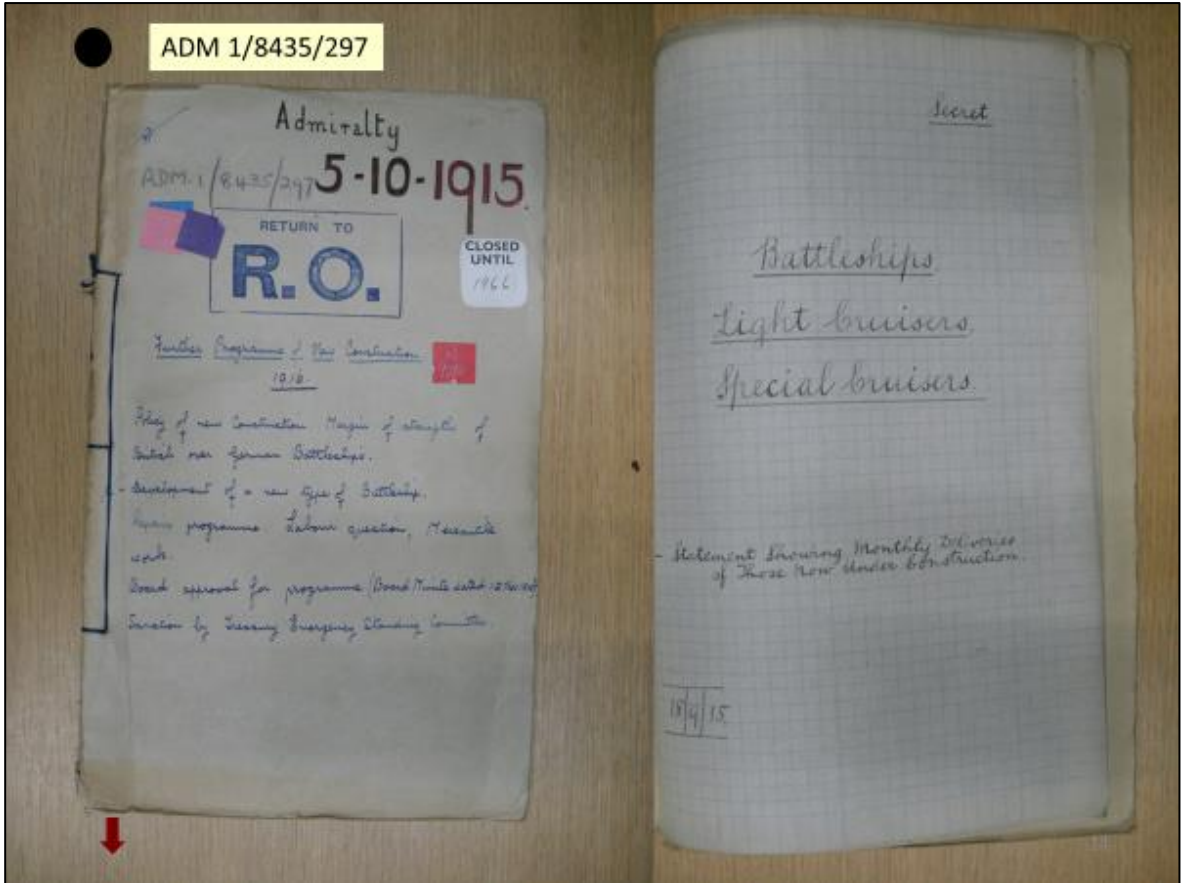 ADM 1/8435/297
Admiralty
ADM. 1/8435/297
5-10-1915.
RETURN TO
R.O.
CLOSED
UNTIL
1966
Further Programme of New Construction
1916.
Policy of new Construction Margin of strength of
British over German Battleships.
- Development of a new type of Battleship.
programme. Labour question, Mercantile
work.
Board approval for programme (Board Minute dated
Sanction by Treasury Emergency Standing Committee.
Secret
Battleships.
Light Cruisers.
Special Cruisers.
- Statement Showing Monthly Deliveries
of Those Now Under Construction.
18/9/15.